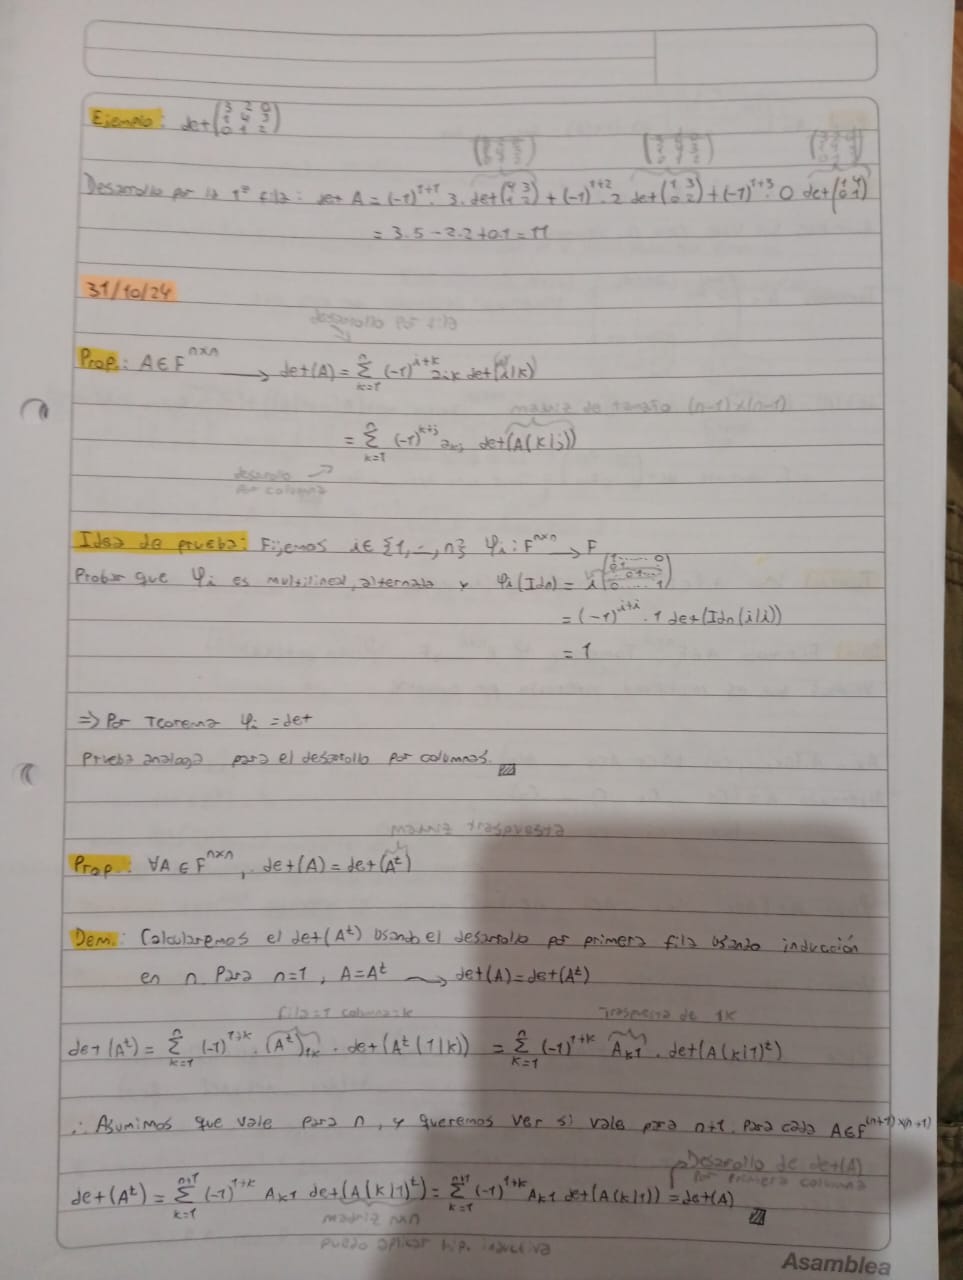 Ejemplo: det(3 2 0
1 4 3
0 1 2)
Desarrollo por la 1ª fila: det A = (-1)^{1+1}. 3. det(4 3
1 2) + (-1)^{1+2}. 2 det(1 3
0 2) + (-1)^{1+3}. 0 det(1 4
0 1)
= 3.5 - 2.2 + 0.1 = 11
31/10/24
desarrollo por fila
Prop.: A ∈ F^{n×n} → det(A) = Σ_{k=1}^{n} (-1)^{i+k} a_{ik} det(A(i|k))
matriz de tamaño (n-1)×(n-1)
= Σ_{k=1}^{n} (-1)^{k+j} a_{kj} det(A(k|j))
desarrollo
por columna
Idea de prueba: Fijemos i ∈ {1, ..., n} φ_i : F^{n×n} → F
Probar que φ_i es multilineal, alternada y φ_i(Idn) = i(1 ..... 0
0 1 ...
... 0 1 ...
0 ..... 1)
= (-1)^{i+i}. 1 det(Idn(i|i))
= 1
⇒ Por Teorema φ_i = det
Prueba analoga para el desarollo por columnas.
matriz traspuesta
Prop.: ∀A ∈ F^{n×n}, det(A) = det(A^t)
Dem.: Calcularemos el det(A^t) usando el desarrollo por primera fila usando inducción
en n Para n=1, A=A^t → det(A)=det(A^t)
fila=1 columna=k Traspuesta de 1k
det(A^t) = Σ_{k=1}^{n} (-1)^{1+k}. (A^t)_{1k}. det(A^t(1|k)) = Σ_{k=1}^{n} (-1)^{1+k} A_{k1}. det(A(k|1)^t)
∴ Asumimos que vale para n, y queremos ver si vale para n+1. Para cada A∈F^{(n+1)×(n+1)}
Desarollo de det(A)
por primera columna
det(A^t) = Σ_{k=1}^{n+1} (-1)^{1+k} A_{k1} det(A(k|1)^t) = Σ_{k=1}^{n+1} (-1)^{1+k} A_{k1} det(A(k|1)) = det(A)
matriz n×n
puedo aplicar hip. inductiva
Asamblea